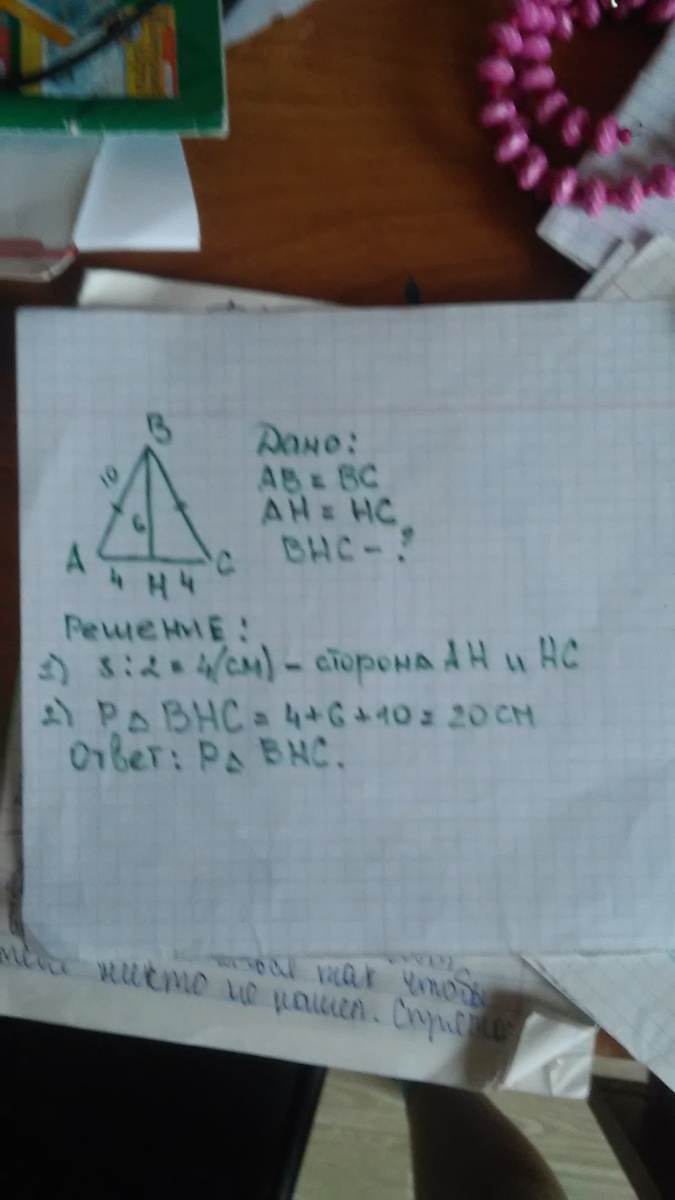 B
10
6
A
C
4
H
4
Дано:
AB = BC
AH = HC
BHC - ?
Решение:
1) 8:2 = 4(см) - сторона AH и HC
2) P△ BHC = 4+6+10 = 20 см
Ответ: P△ BHC.
так чтобы
никто не нашел.